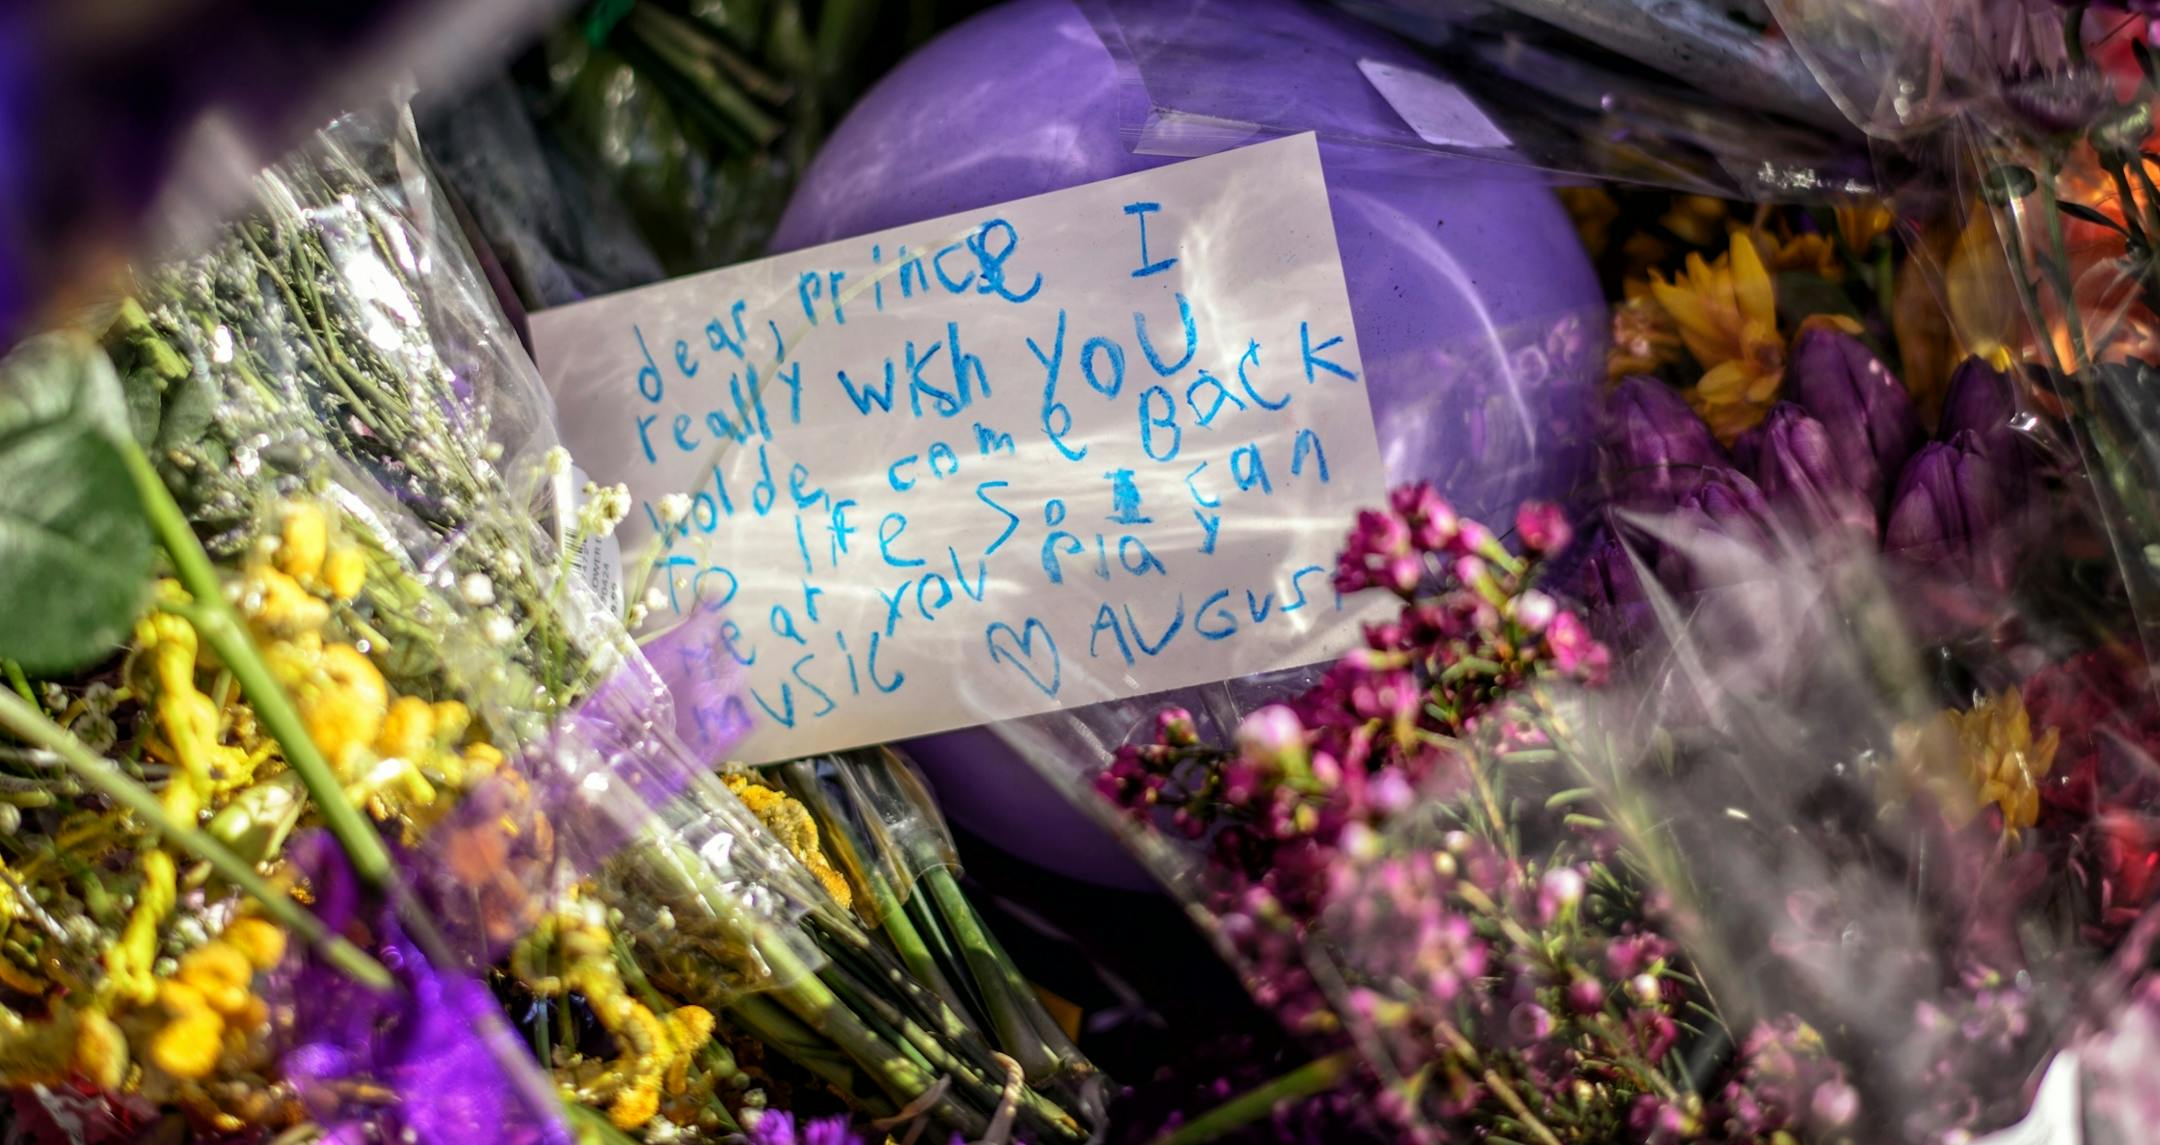 dear, prince I
really wish YoU
wolde, come Back
To life So I can
hear you play
music ♡ AUGUST